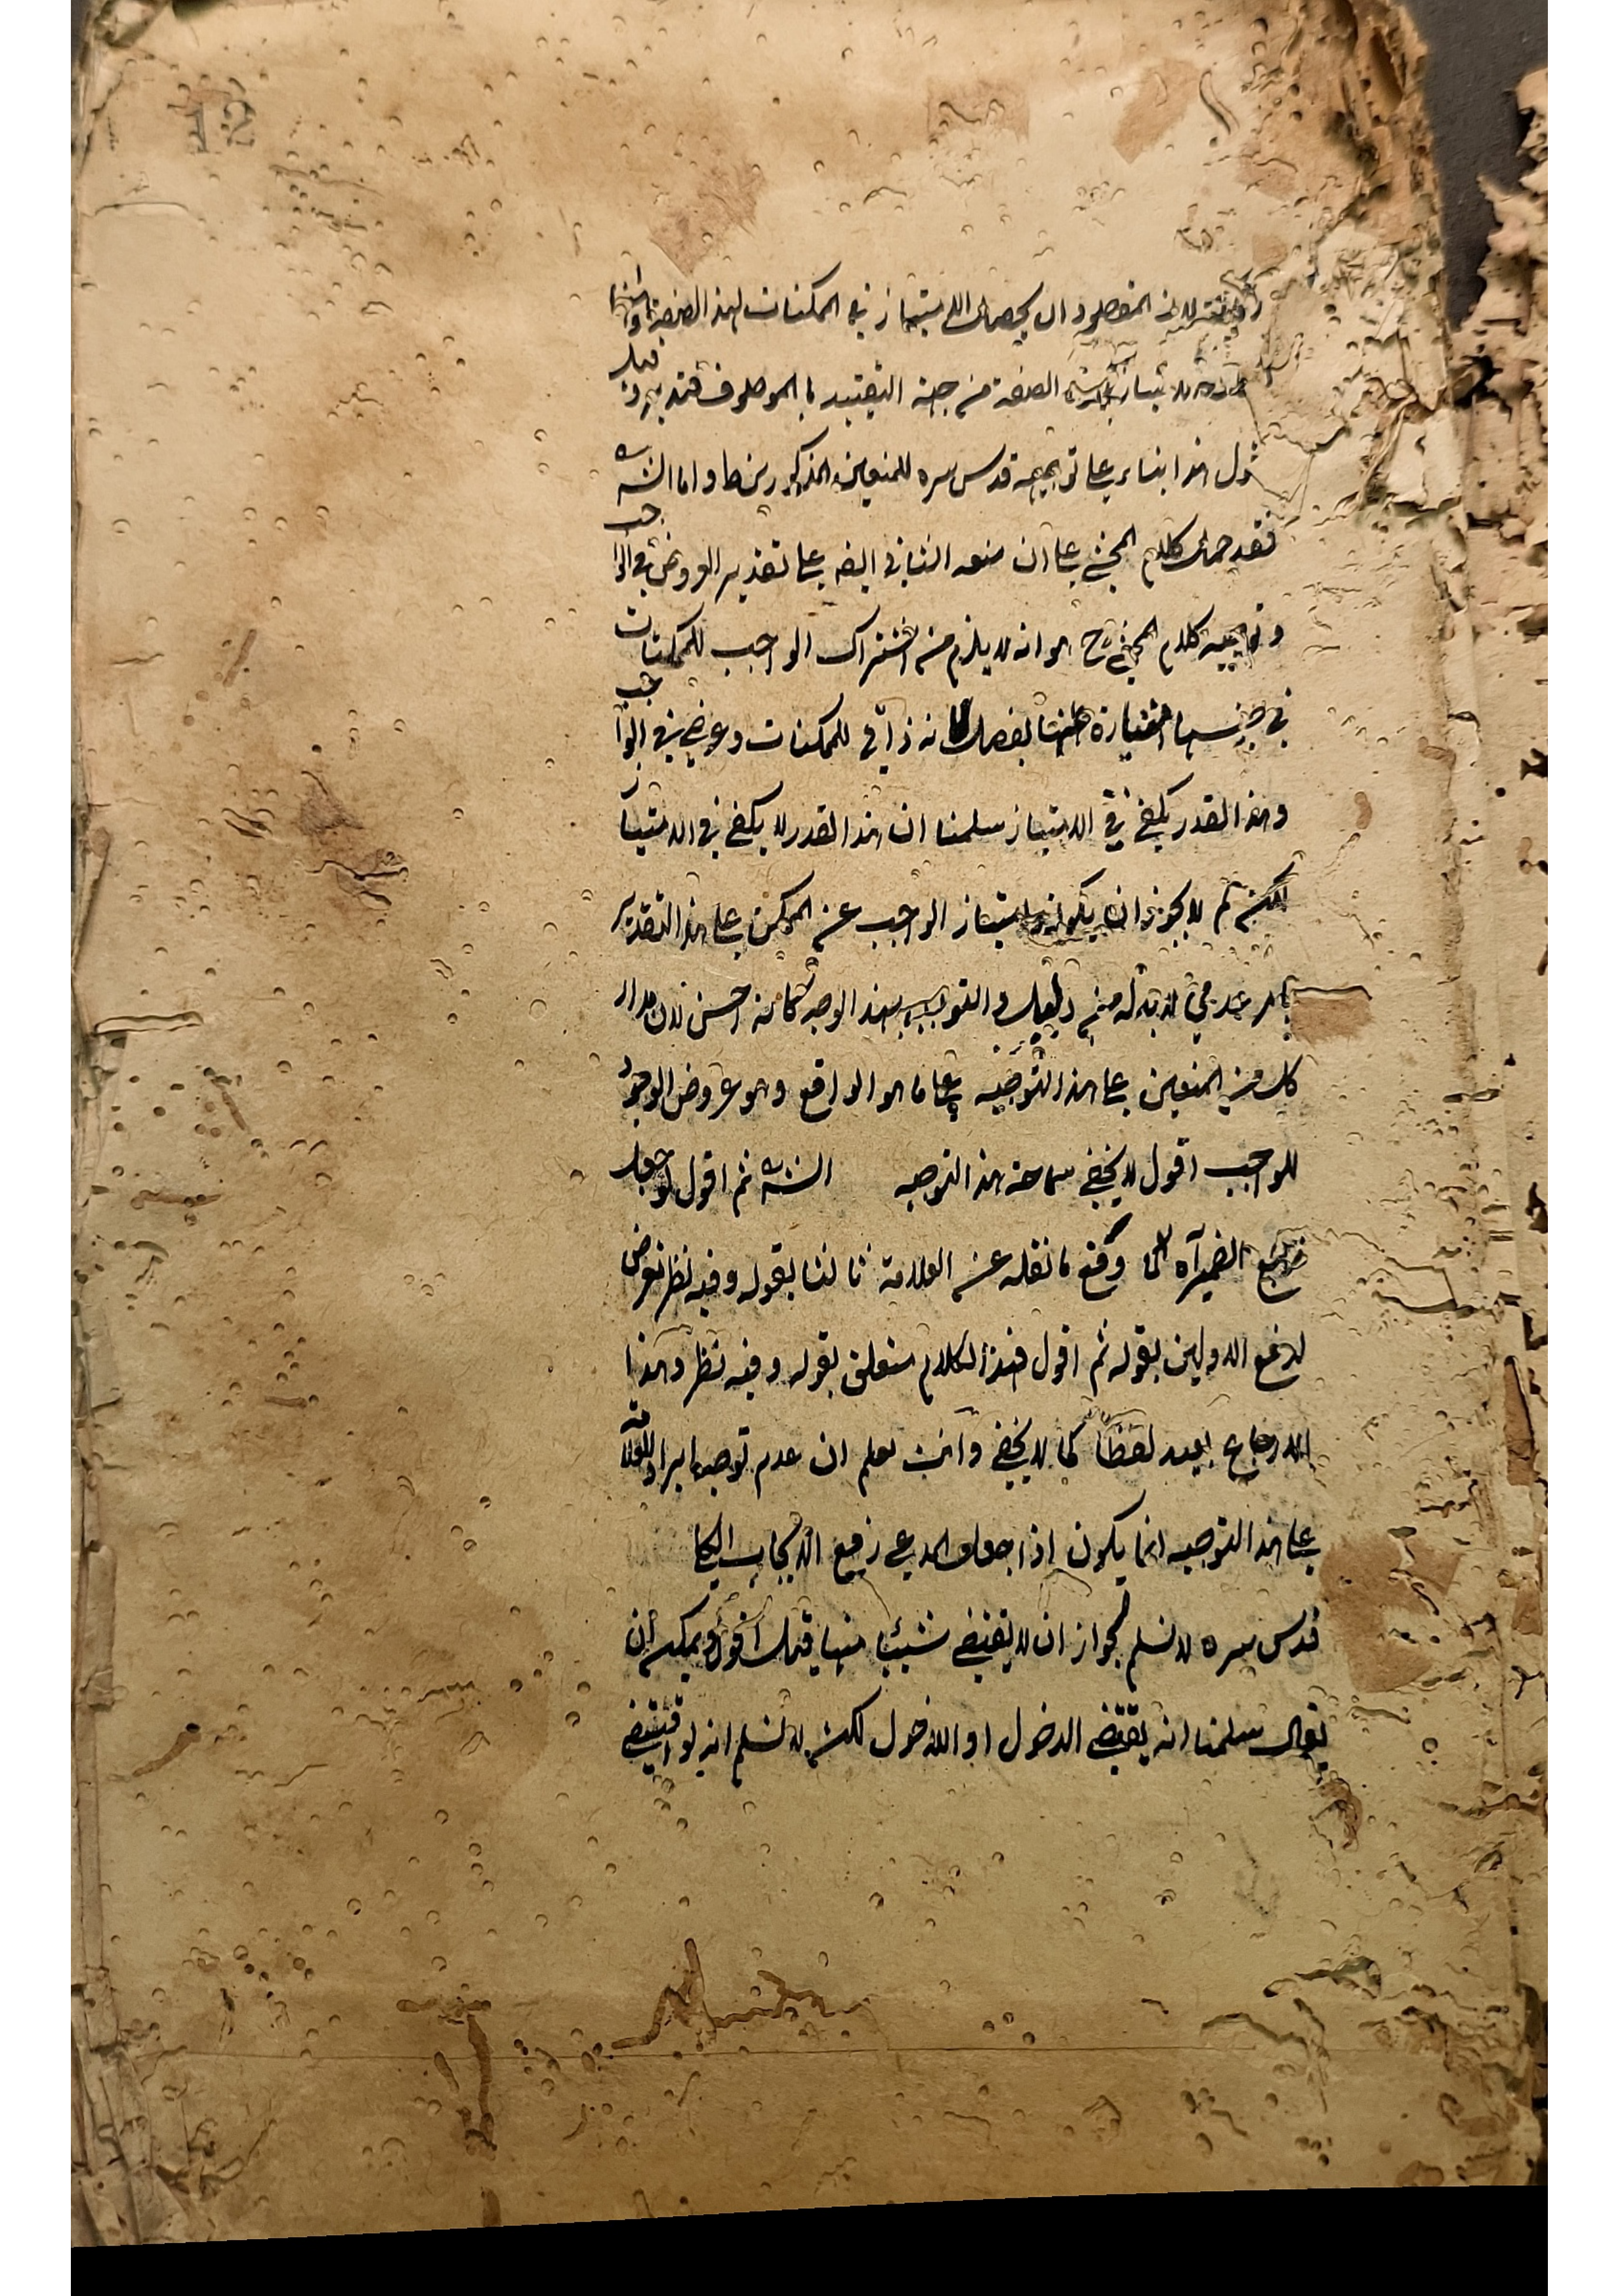 لان المقصود ان يحصل الامتياز في الممكنات لهذه الصفة وانما
الصفة من جهة التقييد بالموصوف فتدبر وقيل
قول هذا بناء على توجيهه قدس سره للمنعين المذكورين ط واما الش
فقد حمل كلام المحشي على ان منعه الثاني ايضه على تقدير العروض في الواجب
وتوجيه كلام المحشي ح هو انه لا يلزم من اشتراك الواجب للممكنات
في جنسها امتيازه عنها بفصل لانه ذاتي للممكنات وعرضي في الواجب
وهذا القدر يكفي في الامتياز سلمنا ان هذا القدر لا يكفي في الامتياز
لكن لم لا يجوز ان يكون امتياز الواجب عن الممكن على هذا التقدير
بامر عدمي لابد له من دليل والتوجيه بهذا الوجه كانه احسن لان مدار
كل من المنعين على هذا التوجيه على ما هو الواقع وهو عروض الوجود
للواجب اقول لا يخفى سماجة هذا التوجيه الش ثم اقول لو جعل
مرجع الضمير آه لما وقع ما نقله عن العلامة ثالثا بقوله وفيه نظر تعرض
لدفع الاولين بقوله ثم اقول فهذا الكلام متعلق بقوله وفيه نظر وهذا
الارجاع بعيد لفظا كما لا يخفى وانت تعلم ان عدم توجه ايراد العلامة
على هذا التوجيه انما يكون اذا جعل المدعى رفع الايجاب الكلي
قدس سره لا نسلم لجواز ان لا يقتضي شيئا منها قيل اقول ويمكن ان
يقال سلمنا انه يقتضي الدخول او اللادخول لكن لا نسلم انه لو اقتضى